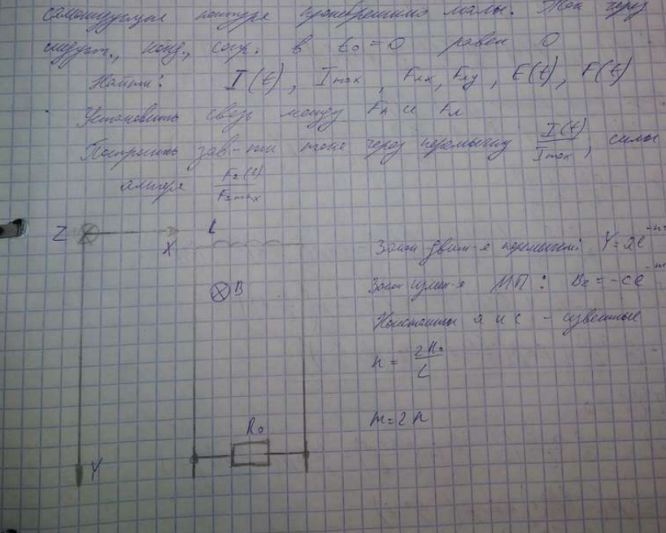 самоиндукция контура пренебрежимо малы. Ток через
индукт., конд., сопр. в t₀ = 0 равен 0
Найти: I(t), Imax, Fлx, Fлy, E(t), F(t)
Установить связь между Fл и Fл
Построить зав-ти тока через перемычку I(t)/Imax, силы
ампера F₂(t)/F₂max
Z X L
Закон движ-я перемычки: Y=ae
⊗B
Закон измен-я МП: Bz = -ce
Константы a и c - известные
n = 2R₀/L
m=2n
R₀
Y